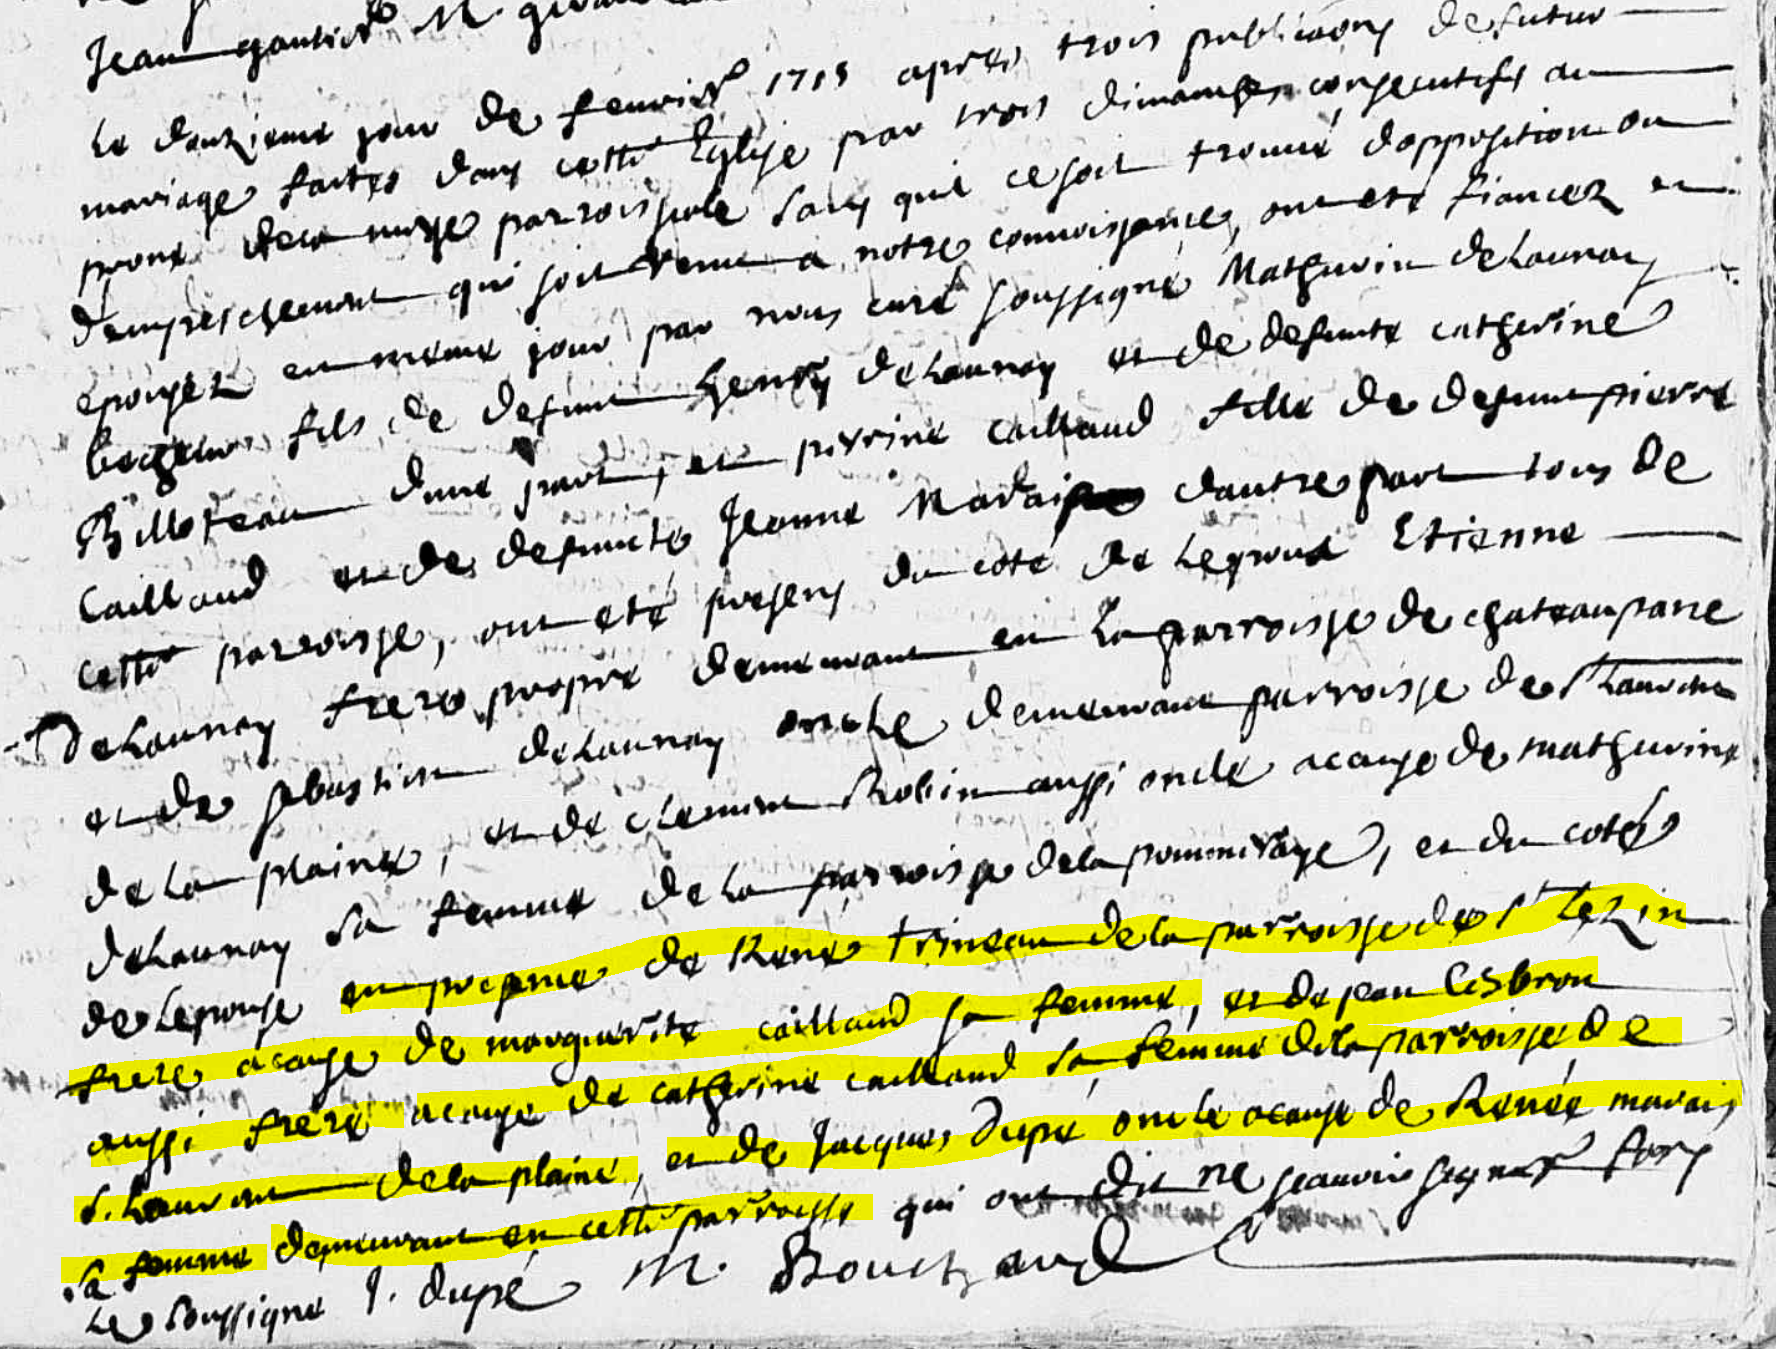 Jean gautier M. giraud
Le douzieme jour de feuvrier 1715 apres trois publicaons de futur
mariage faites dans cette Eglise par trois dimanches consecutifs au
prone de la messe parroissiale sans quil ce soit trouvé dopposition ou
dempeschement qui soit venu a notre connoissance, ont eté fiancez et
epousez en meme jour par nous curé soussigné Mathurin deLaunay
fils de defunt henry deLaunay et de defunte catherine
Billoteau dune part, et perrine caillaud fille de defunt pierre
Caillaud et de defuncte Jeanne Marais dautre part tous de
cette parroisse, ont eté presens du coté de Lepoux Etienne
deLaunay frere propre demeurant en La parroisse de chateaupane
et de sebastien deLaunay oncle demeurant parroisse de st Laurent
de La plaine, et de clement Robin aussi oncle a cause de mathurine
deLaunay sa femme de La parroisse de la pommeraye, et du coté
de Lepouse en presence de René trineau de la parroisse de st Lezin
frere a cause de marguerite caillaud sa femme, et de jean Cesbron
aussi frere a cause de catherine caillaud sa femme de la parroisse de
st. Laurent de la plaine, et de Jacques dupé oncle a cause de Renée marais
sa femme demeurant en cette parroisse qui ont dit ne scauoir signer fors
Le soussigne J. dupé M. Bouchand